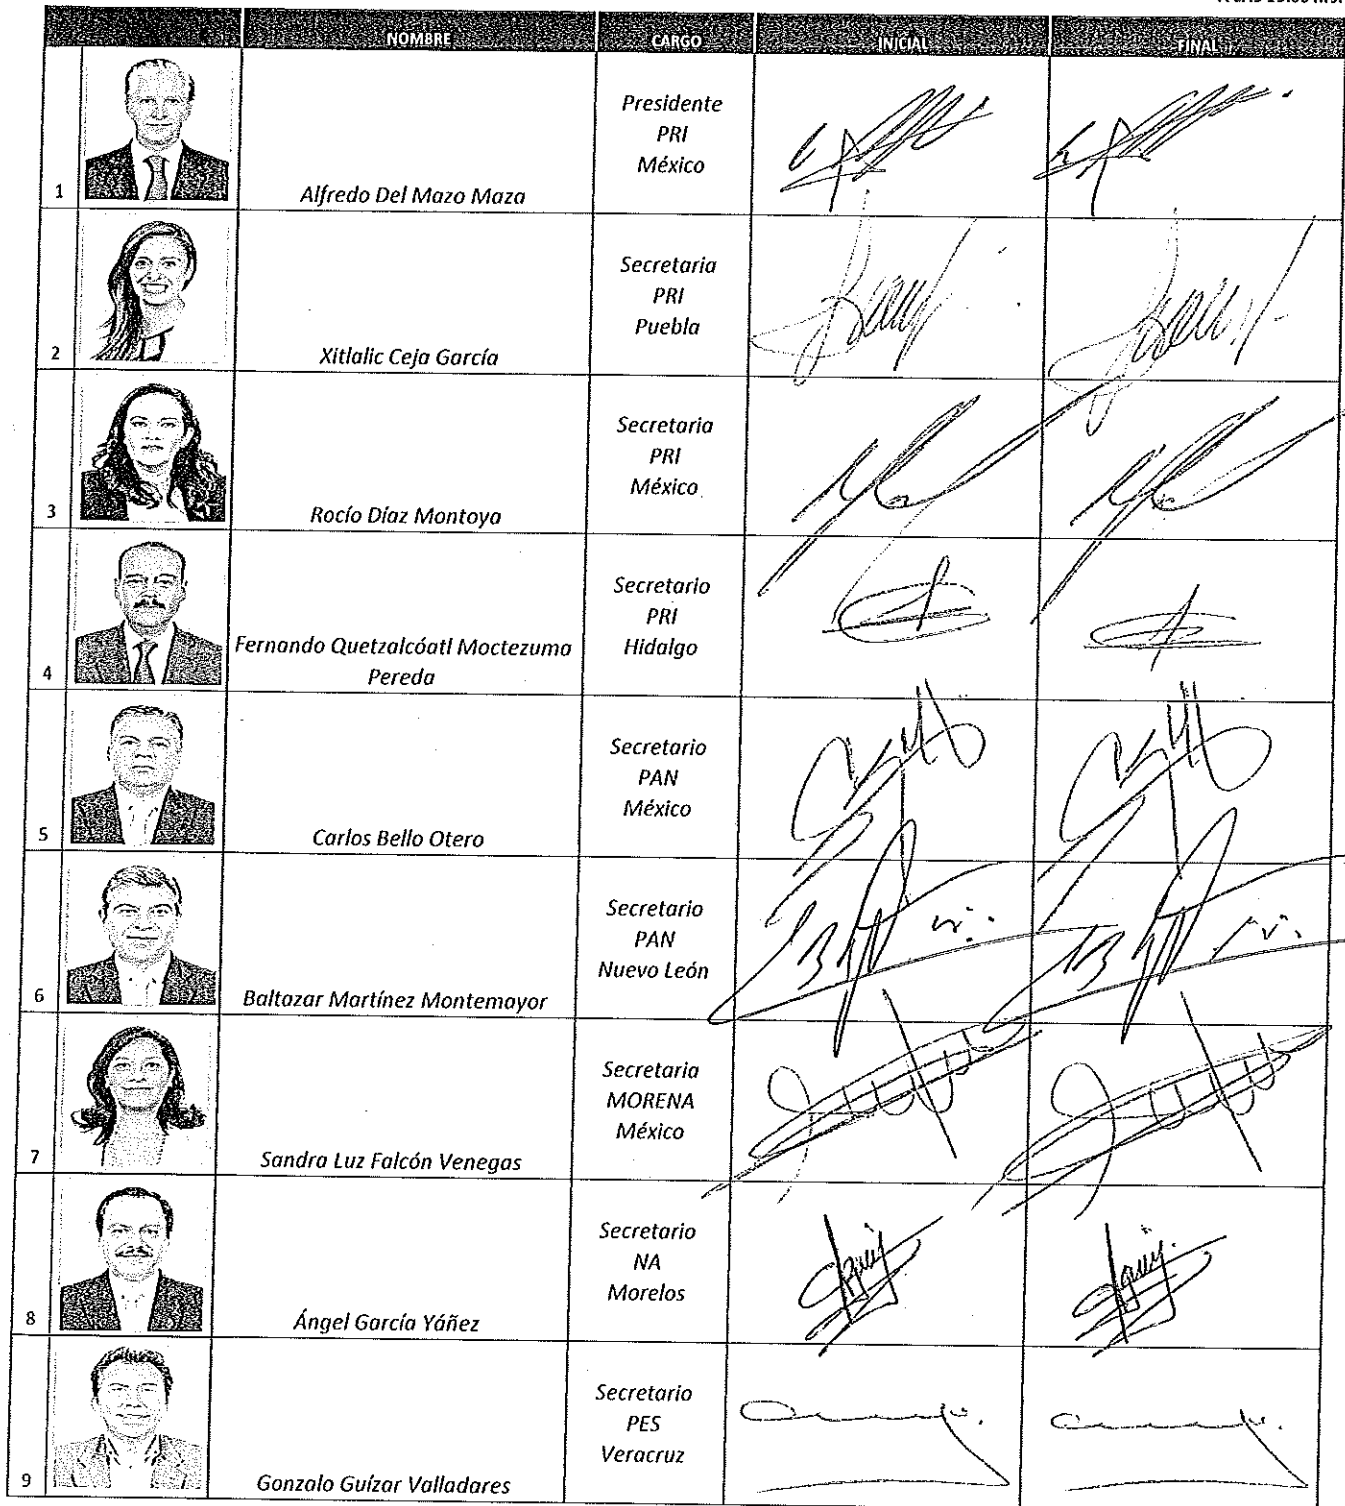 NOMBRE CARGO INICIAL FINAL
1 Alfredo Del Mazo Maza
Presidente
PRI
México
2 Xitlalic Ceja García
Secretaria
PRI
Puebla
3 Rocío Díaz Montoya
Secretaria
PRI
México
4 Fernando Quetzalcóatl Moctezuma
Pereda
Secretario
PRI
Hidalgo
5 Carlos Bello Otero
Secretario
PAN
México
6 Baltazar Martínez Montemayor
Secretario
PAN
Nuevo León
7 Sandra Luz Falcón Venegas
Secretaria
MORENA
México
8 Ángel García Yáñez
Secretario
NA
Morelos
9 Gonzalo Guízar Valladares
Secretario
PES
Veracruz